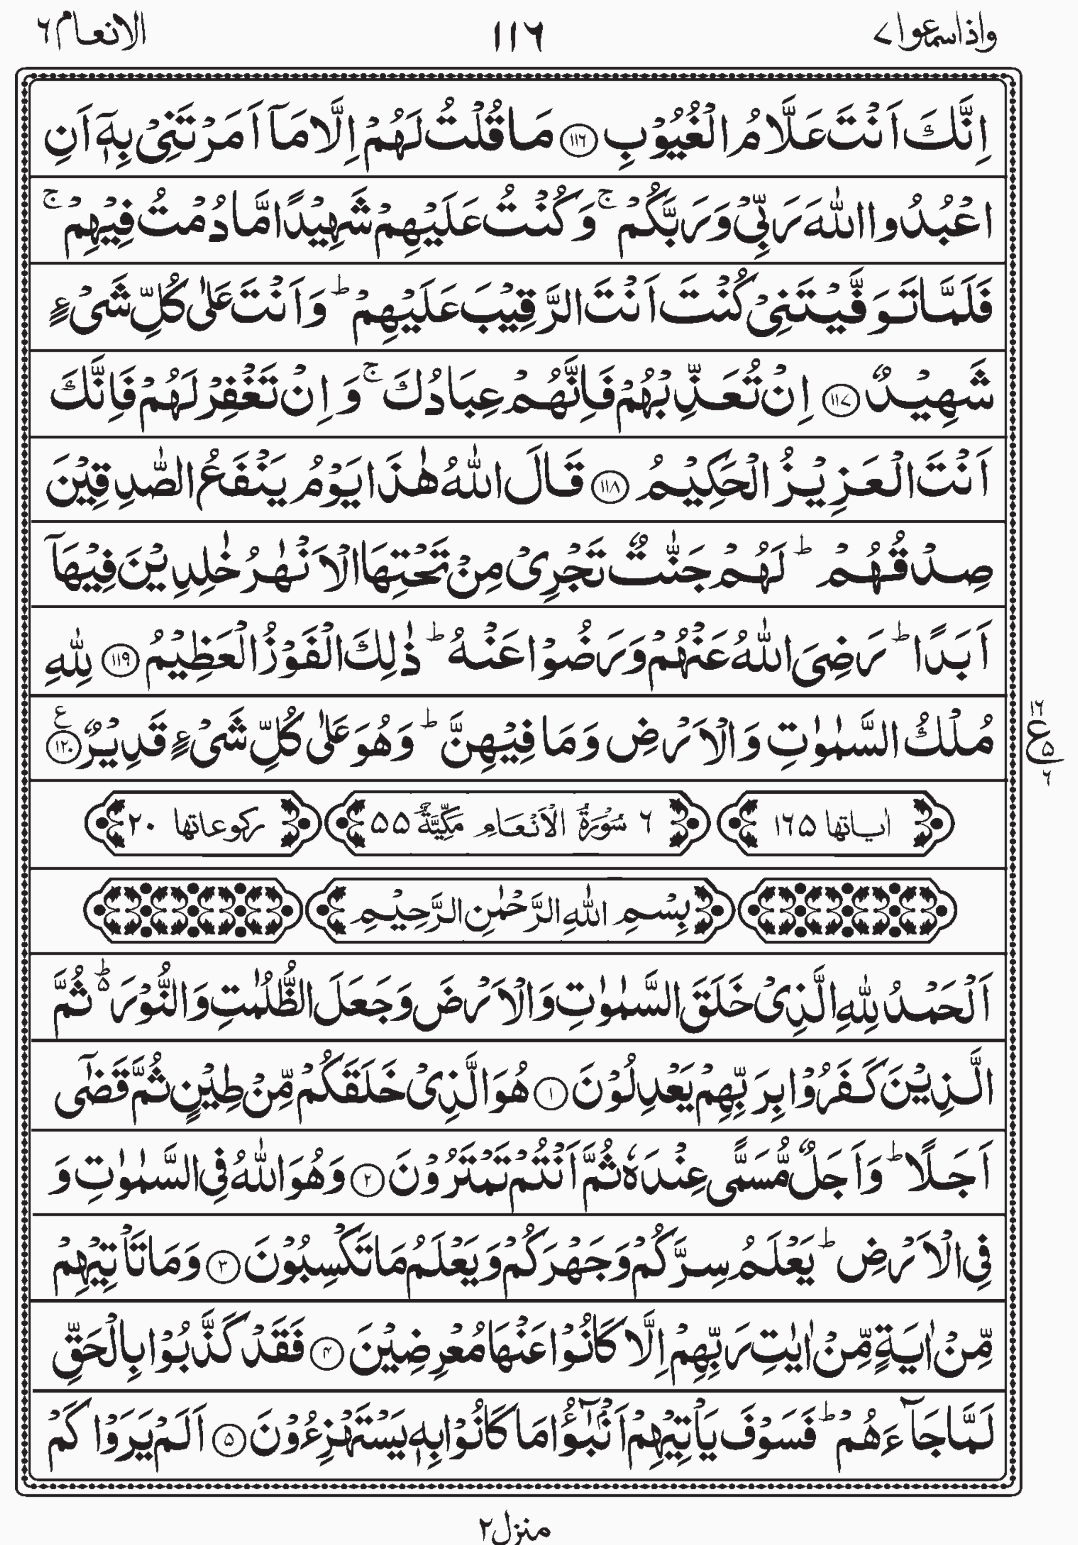 واذاسمعوا ٧ ١١٦ الانعام ٦
اِنَّكَ اَنْتَ عَلَّامُ الْغُيُوْبِ ۝١١٦ مَا قُلْتُ لَهُمْ اِلَّا مَاۤ اَمَرْتَنِىْ بِهٖۤ اَنِ
اعْبُدُوا اللّٰهَ رَبِّىْ وَرَبَّكُمْ ۚ وَكُنْتُ عَلَيْهِمْ شَهِيْدًا مَّا دُمْتُ فِيْهِمْ ۚ
فَلَمَّا تَوَفَّيْتَنِىْ كُنْتَ اَنْتَ الرَّقِيْبَ عَلَيْهِمْ ؕ وَاَنْتَ عَلٰى كُلِّ شَىْءٍ
شَهِيْدٌ ۝١١٧ اِنْ تُعَذِّبْهُمْ فَاِنَّهُمْ عِبَادُكَ ۚ وَاِنْ تَغْفِرْ لَهُمْ فَاِنَّكَ
اَنْتَ الْعَزِيْزُ الْحَكِيْمُ ۝١١٨ قَالَ اللّٰهُ هٰذَا يَوْمُ يَنْفَعُ الصّٰدِقِيْنَ
صِدْقُهُمْ ؕ لَهُمْ جَنّٰتٌ تَجْرِىْ مِنْ تَحْتِهَا الْاَنْهٰرُ خٰلِدِيْنَ فِيْهَاۤ
اَبَدًا ؕ رَضِىَ اللّٰهُ عَنْهُمْ وَرَضُوْا عَنْهُ ؕ ذٰلِكَ الْفَوْزُ الْعَظِيْمُ ۝١١٩ لِلّٰهِ
مُلْكُ السَّمٰوٰتِ وَالْاَرْضِ وَمَا فِيْهِنَّ ؕ وَهُوَ عَلٰى كُلِّ شَىْءٍ قَدِيْرٌ ۝١٢٠ ع
١٦ ع ٥ ٦
اٰياتها ١٦٥ ٦ سُوْرَةُ الْاَنْعَامِ مَكِّيَّةٌ ٥٥ ركوعاتها ٢٠
بِسْمِ اللّٰهِ الرَّحْمٰنِ الرَّحِيْمِ
اَلْحَمْدُ لِلّٰهِ الَّذِىْ خَلَقَ السَّمٰوٰتِ وَالْاَرْضَ وَجَعَلَ الظُّلُمٰتِ وَالنُّوْرَ ؕ ثُمَّ
الَّذِيْنَ كَفَرُوْا بِرَبِّهِمْ يَعْدِلُوْنَ ۝١ هُوَ الَّذِىْ خَلَقَكُمْ مِّنْ طِيْنٍ ثُمَّ قَضٰۤى
اَجَلًا ؕ وَاَجَلٌ مُّسَمًّى عِنْدَهٗ ثُمَّ اَنْتُمْ تَمْتَرُوْنَ ۝٢ وَهُوَ اللّٰهُ فِى السَّمٰوٰتِ وَ
فِى الْاَرْضِ ؕ يَعْلَمُ سِرَّكُمْ وَجَهْرَكُمْ وَيَعْلَمُ مَا تَكْسِبُوْنَ ۝٣ وَمَا تَاْتِيْهِمْ
مِّنْ اٰيَةٍ مِّنْ اٰيٰتِ رَبِّهِمْ اِلَّا كَانُوْا عَنْهَا مُعْرِضِيْنَ ۝٤ فَقَدْ كَذَّبُوْا بِالْحَقِّ
لَمَّا جَآءَهُمْ ؕ فَسَوْفَ يَاْتِيْهِمْ اَنْۢبٰٓؤُا مَا كَانُوْا بِهٖ يَسْتَهْزِءُوْنَ ۝٥ اَلَمْ يَرَوْا كَمْ
منزل ٢